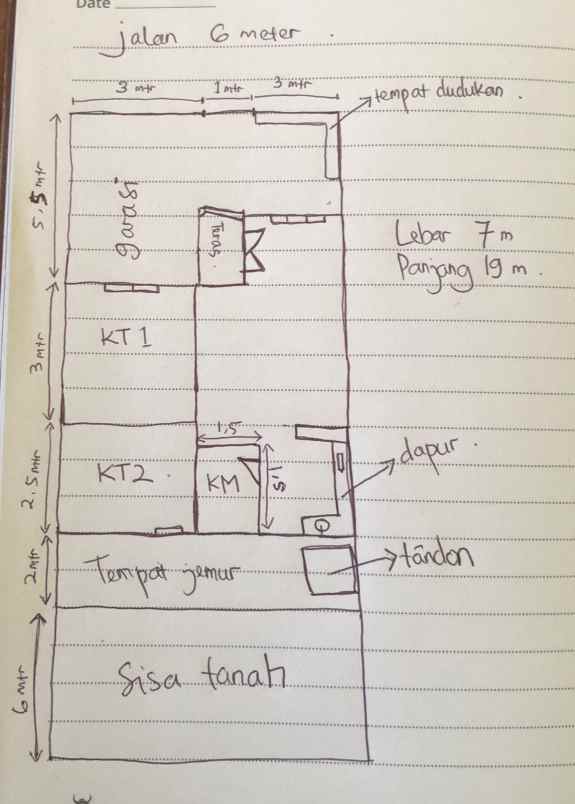 Date
jalan 6 meter .
3 mtr 1 mtr 3 mtr
tempat dudukan .
5,5 mtr
garasi
Teras
Lebar 7 m
Panjang 19 m .
3 mtr
KT 1
1,5
2,5 mtr
KT2 .
KM
1,5
dapur .
2 mtr
Tempat jemur
tandon
6 mtr
Sisa tanah